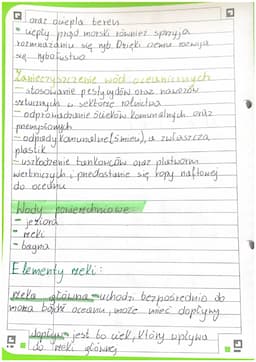 oraz ociepla teren
• ciepły prąd morski również sprzyja
rozmnażaniu się ryb. Dzięki czemu rozwija
się rybołustwo
Zanieczyszczenie wód oceanicznych
- stosowanie pestycydów oraz nawozów
sztucznych w sektorze rolnictwa
- odprowadzanie ścieków komunalnych oraz
przemysłowych
- odpady komunalne (śmieci), a zwłaszcza
plastik
- uszkodzenie tankowców oraz platform
wiertniczych i przedostanie się ropy naftowej
do oceanu
Wody powierzchniowe
- jeziora
- rzeki
- bagna
Elementy rzeki:
rzeka główna - uchodzi bezpośrednio do
morza bądź oceanu, może mieć dopływy
dopływ - jest to ciek, który wpływa
do rzeki głównej